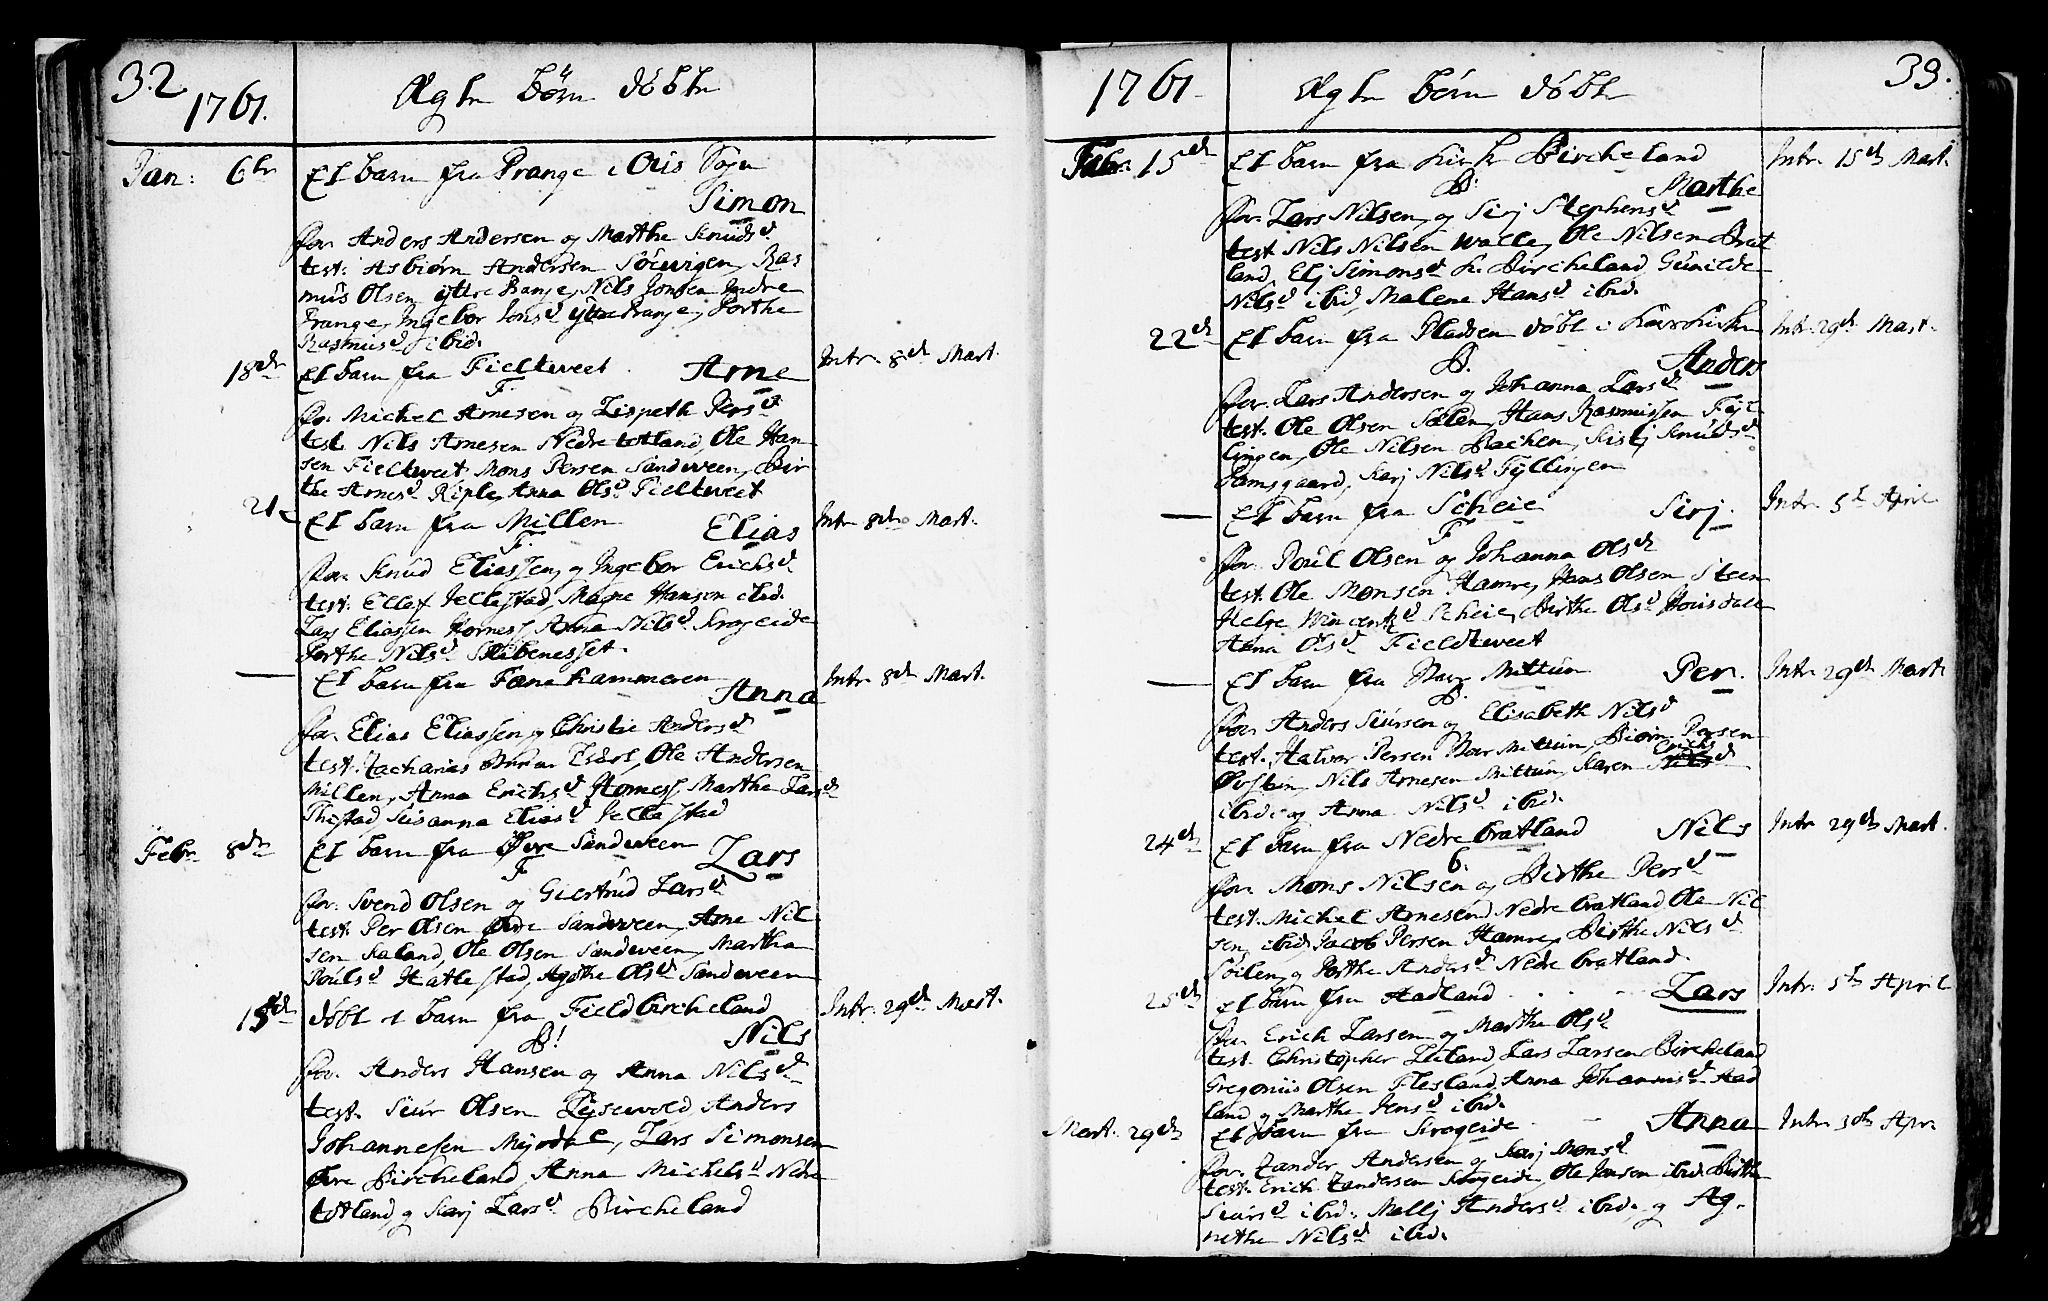 32
1761.
Ægte börn döbte
Jan: 6te
Et barn fra Prange i Ous Sogn
Simon
for. Anders Andersen og Marthe Knudsd
test: Asbiørn Andersen Söevigen, Ras
mus Olsen ÿttre Pranje, Nils Jonsen Indre
Prange, Ingebor Jonsd ÿttre Pranje, Dorthe
Rasmusd ibid.
18de
Et barn fra Fieltweet
Arne
Intr. 8de Mart.
F.
for. Michel Arnesen og Lispeth Persd
test Nils Arnesen Nedre totland, Ole Han
sen Fieltweet Mons Persen Sandween, Bir
the Arnesd Riple, Anna Olsd Fieltweet
21
Et barn fra Millen
Elias
Intr 8de Mart.
F.
for. Knud Eliassen, og Ingebor Erichsd
test. Ellef Jellestad, Magne Hansen ibid.
Lars Eliassen Hornes, Anna Nilsd Krogeide
Dorthe Nilsd Skibenesset.
—
Et barn fra Fanehammeren
Anna
Intr. 8de Mart.
for. Elias Eliassen, og Christie Andersd
test. Zacharias Esdors, Ole Andersen
Millen, Anna Erichsd Hornes, Marthe Larsd
Thistad, Susanna Eliasd Jellestad
Febr. 8de
Et barn fra Øvre Sandween
Lars
F
for. Svend Olsen og Giertrud Larsd
test. Per Olsen Øvre Sandween, Arne Nil
sen Kaland, Ole Olsen Sandween, Martha
Poulsd Hatlestad, Agathe Olsd Sandween
15de
döbt et barn fra Field bircheland
Intr. 29de Mart.
B!
Nils
for. Anders Hansen og Anna Nilsd
test. Siur Olsen Lÿsewold, Anders
Johannesen Mÿrdal, Lars Simonsen
Øvre Bircheland, Anna Michelsd Nedre
totland, og Karj Larsd Bircheland
1761
Ægte börn döbte
33.
Febr. 15de
Et barn fra Kirke Bircheland
Intr. 15de Mart.
B.
Marthe
for. Lars Nilsen, og Sirj Stephensd
test Nils Nilsen Walle, Ole Nilsen Brat
land, Elj Simonsd K. Bircheland, Gunilde
Nilsd ibid, Malene Hansd ibid.
22de
Et barn fra Pladsen döbt i Kors kirke
Intr. 29de Mart.
B.
Anders
for. Lars Andersen og Johanna Larsd
test. Ole Olsen Sælen, Hans Rasmussen Fÿl
lingen, Ole Nilsen Bachen, Kistj Knudsd
Damsgaard, Karj Nilsd Fÿllingen
—
Et barn fra Scheie
Sirj.
Intr. 5te April
F
for. Poul Olsen og Johanna Olsd
test. Ole Monsen Hamre, Hans Olsen Steen
Helge Wincentzd Scheie, Birthe Olsd Houisdalen
Anna Olsd Fieldtweet
—
Et barn fra Mittun
Per.
Intr. 29de Mart.
B.
for Anders Siursen og Elisabeth Nilsd
test. Halvor Persen Mittun, Biörn Persen
Erichs
Øvsten, Nils Arnesen Mittun, Karen Nilsd
ibid. og Anna Nilsd ibid.
24de
Et barn fra Nedre bratland
Nils
Intr. 29de Mart.
6.
for. Mons Nilsen og Birthe Persd
test. Michel Arnesen Nedre bratland, Ole Nil
sen, ibid, Jacob Persen Hamre, Birthe Nilsd
Söilen, og Dorthe Andersd Nedre bratland.
25de
Et barn fra Aadland
Lars
Intr. 5te April
for. Erich Larsen og Marthe Olsd
test. Christopher Liland, Lars Larsen Bircheland
Gregorius Olsen Flesland, Anna Johannisd Aad
land og Marthe Jensd ibid.
Mart. 29de
Et barn fra Krogeide
Anna
Intr. Apr
for. Zander Andersen og Karj Monsd
test. Erich Zandersen Krogeide, Ole Jansen ibid. Birthe
Siursd ibid. Mallj Andersd ibid. og Ag-
nethe Nilsd ibid.